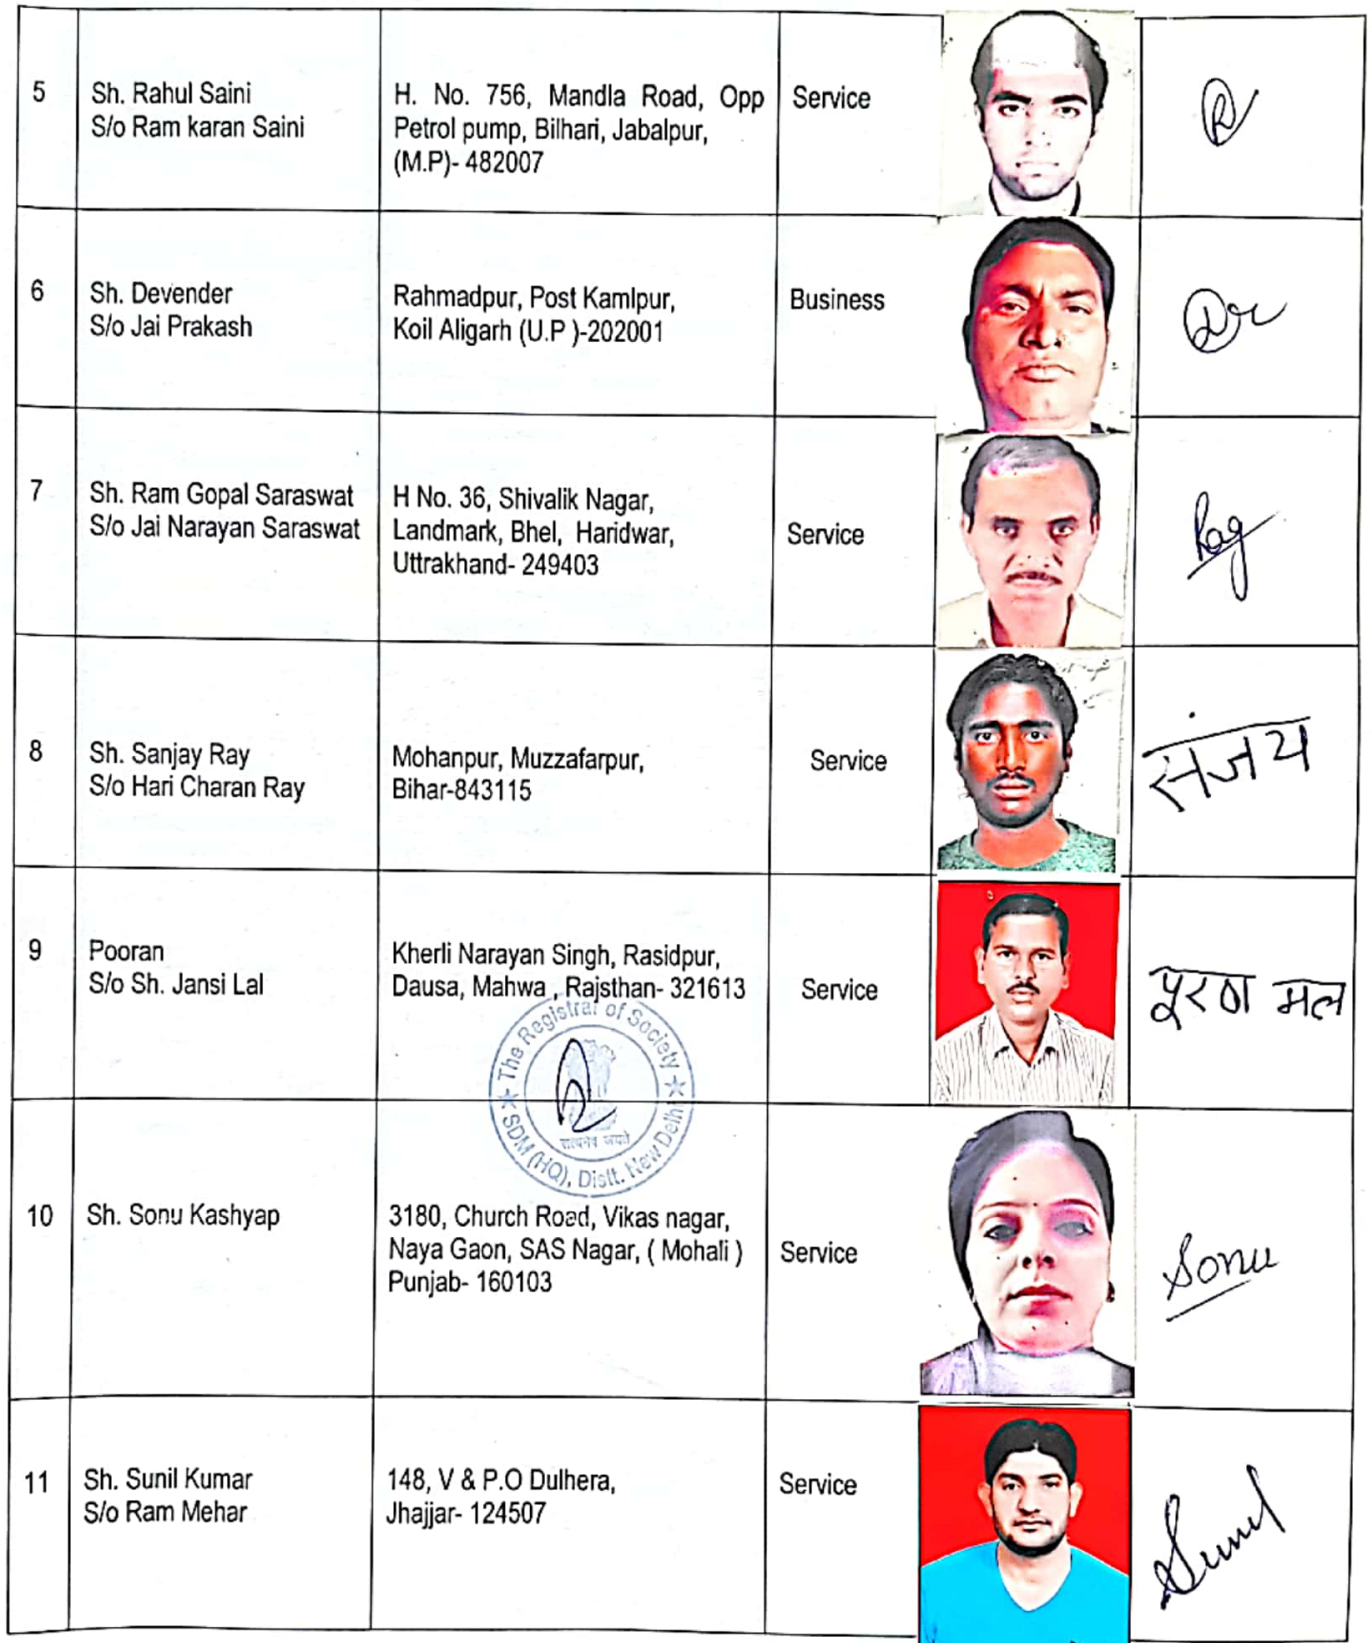 5
Sh. Rahul Saini
S/o Ram karan Saini
H. No. 756, Mandla Road, Opp
Petrol pump, Bilhari, Jabalpur,
(M.P)- 482007
Service
6
Sh. Devender
S/o Jai Prakash
Rahmadpur, Post Kamlpur,
Koil Aligarh (U.P )-202001
Business
7
Sh. Ram Gopal Saraswat
S/o Jai Narayan Saraswat
H No. 36, Shivalik Nagar,
Landmark, Bhel, Haridwar,
Uttrakhand- 249403
Service
8
Sh. Sanjay Ray
S/o Hari Charan Ray
Mohanpur, Muzzafarpur,
Bihar-843115
Service
संजय
9
Pooran
S/o Sh. Jansi Lal
Kherli Narayan Singh, Rasidpur,
Dausa, Mahwa , Rajsthan- 321613
Service
पूरण मल
The Registrar of Society
सत्यमेव जयते
SDM (HQ), Distt. New Delhi
10
Sh. Sonu Kashyap
3180, Church Road, Vikas nagar,
Naya Gaon, SAS Nagar, ( Mohali )
Punjab- 160103
Service
Sonu
11
Sh. Sunil Kumar
S/o Ram Mehar
148, V & P.O Dulhera,
Jhajjar- 124507
Service
Sunil